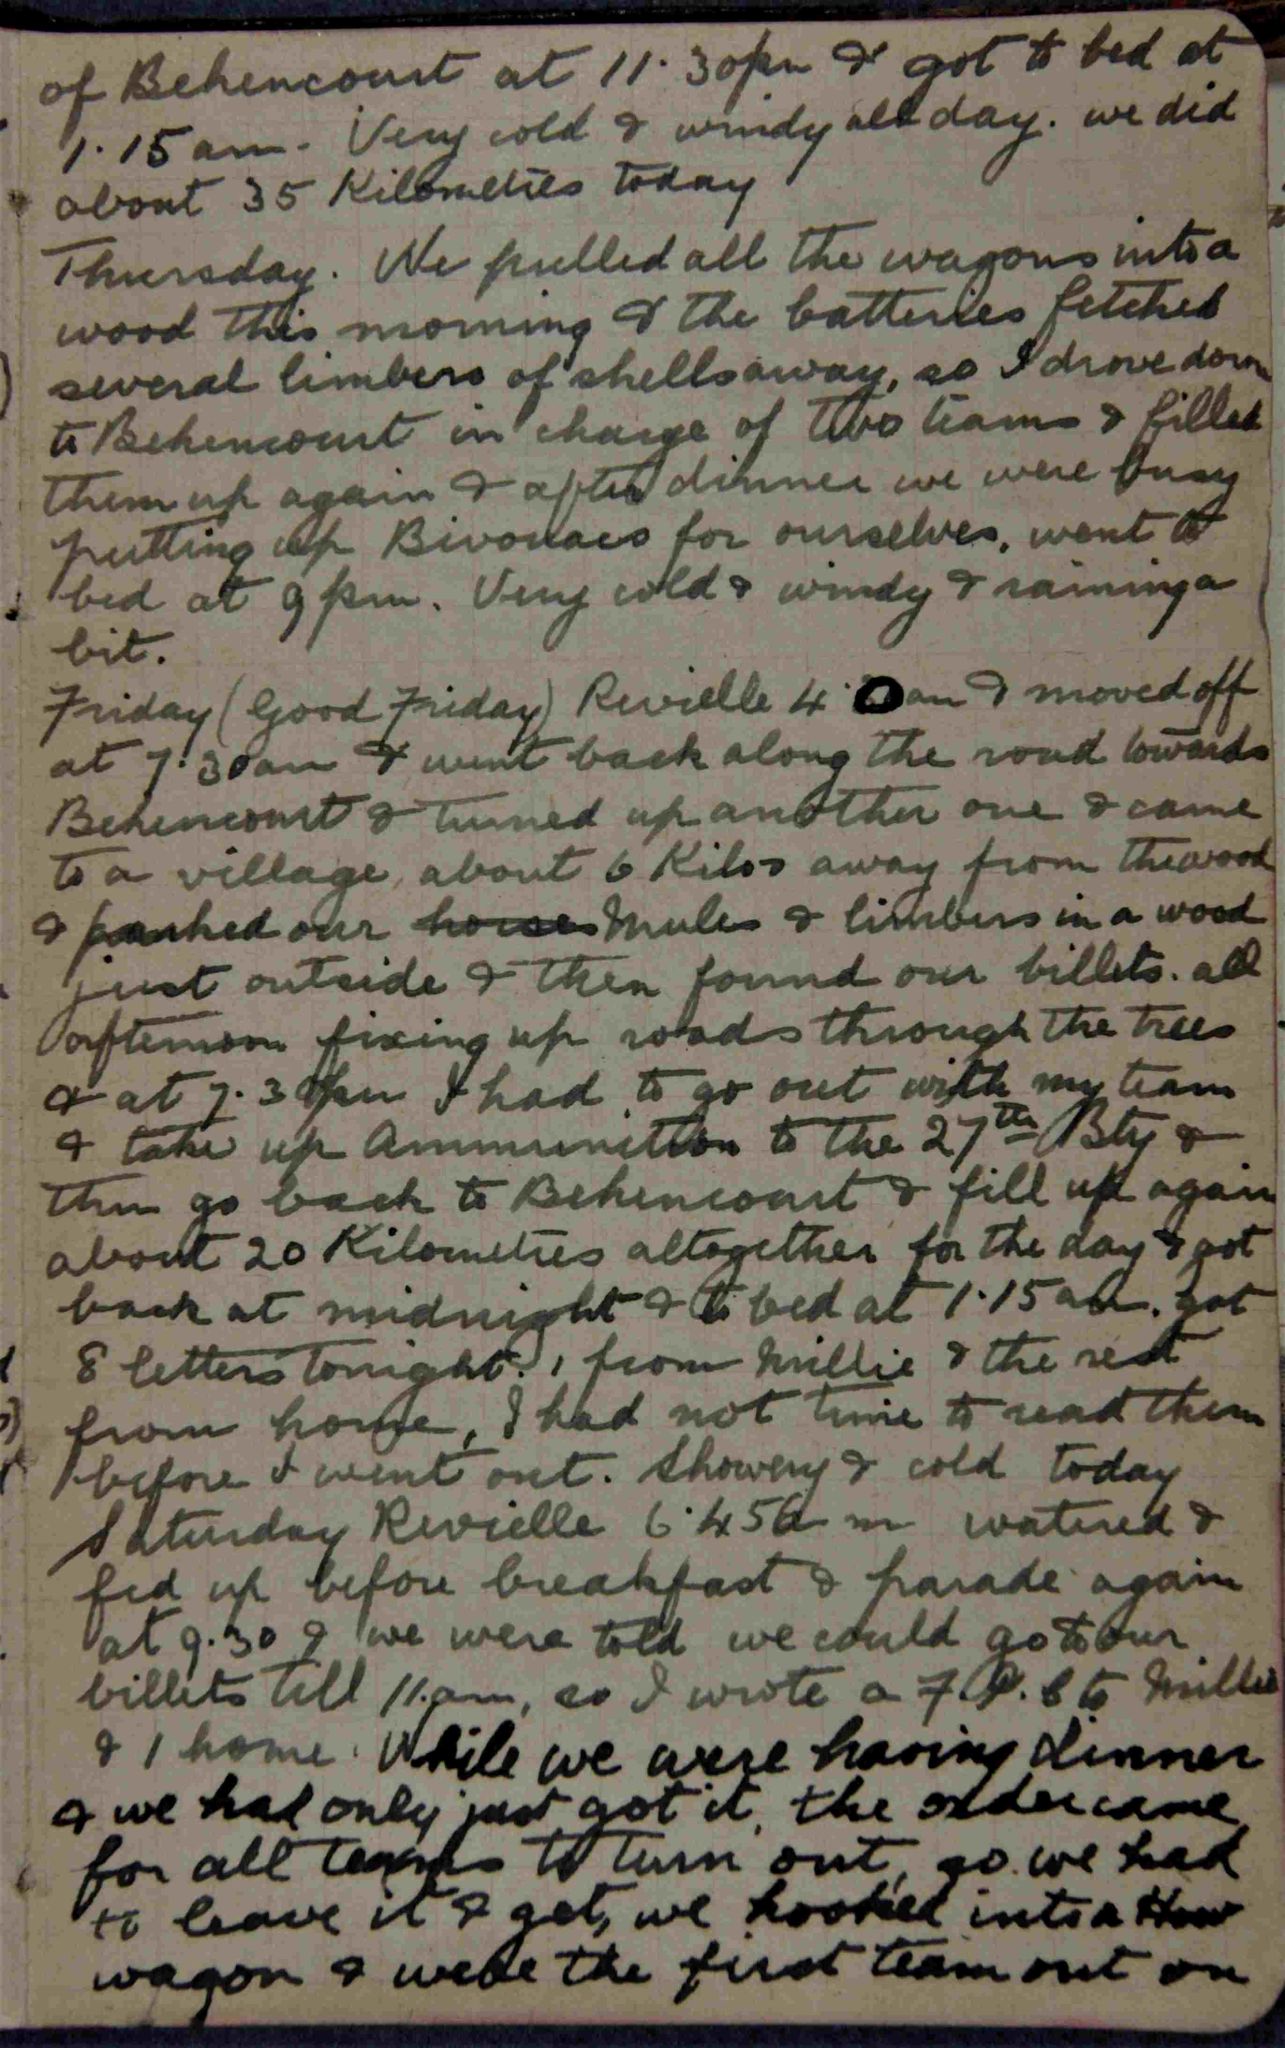 of Behencourt at 11.30pm & got to bed at
1.15 am. Very cold & windy all day. we did
about 35 Kilometres today
Thursday. We pulled all the wagons into a
wood this morning & the batteries fetched
several limbers of shells away, so I drove down
to Behencourt in charge of two teams & filled
them up again & after dinner we were busy
putting up Bivouacs for ourselves, went to
bed at 9 pm. Very cold & windy & raining a
bit.
Friday (Good Friday) Revielle 4.0 am & moved off
at 7.30am & went back along the road towards
Behencourt & turned up another one & came
to a village, about 6 Kilos away from the wood
& parked our horses Mules & limbers in a wood
just outside & then found our billets. all
afternoon fixing up roads through the trees
& at 7.30pm I had to go out with my team
& take up Ammunition to the 27th Bty &
then go back to Behencourt & fill up again
about 20 Kilometres altogether for the day & got
back at midnight & to bed at 1.15 am. got
8 letters tonight. 1 from Millie & the rest
from home, I had not time to read them
before I went out. Showery & cold today
Saturday Revielle 6.45 a m watered &
fed up before breakfast & parade again
at 9.30 & we were told we could go to our
billets till 11.am, so I wrote a F.P.C to Millie
& 1 home. While we were having dinner
& we had only just got it, the order came
for all teams to turn out, so we had
to leave it & get, we hooked into a How
wagon & were the first team out on